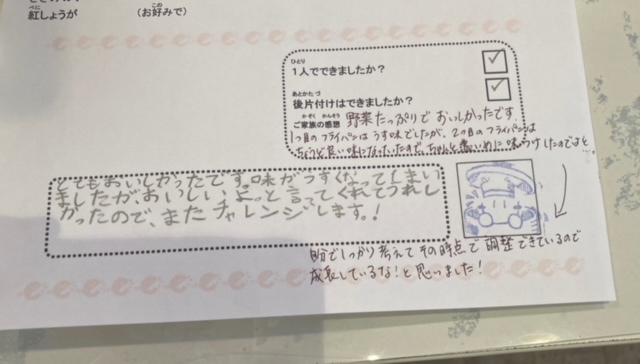 紅しょうが　　（お好みで）
１人でできましたか？
後片付けはできましたか？
ご家族の感想 野菜たっぷりで おいしかったです。
1つ目のフライパンは うす味でしたが、2つ目のフライパンは
ちょうど良い味になっていたので、ちゃんと濃いめに味つけしたのでよと。
とてもおいしかったです。味がうすくなってしまい
ましたが、おいしいよ。と言ってくれてうれし
かったので、またチャレンジします。！
自分でしっかり考えて その時点で 調整できているので
成長しているな！と思いました！